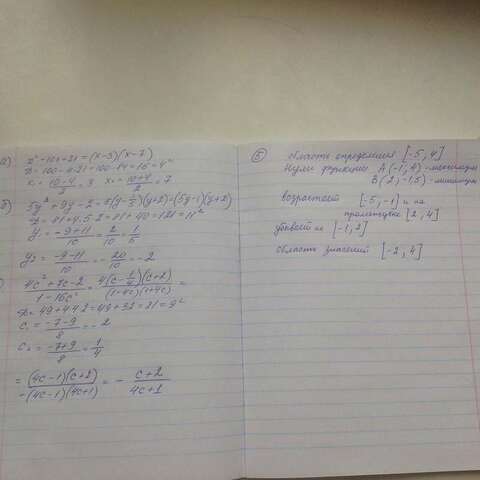 а) x² - 10x + 21 = (x-3)(x-7)
D = 100 - 4·21 = 100 - 84 = 16 = 4²
x₁ = (10-4)/2 = 3 x₂ = (10+4)/2 = 7
б) 5y² + 9y - 2 = 5(y - 1/5)(y+2) = (5y-1)(y+2)
D = 81 + 4·5·2 = 81 + 40 = 121 = 11²
y = (-9+11)/10 = 2/10 = 1/5
y₂ = (-9-11)/10 = -20/10 = -2
(4c² + 7c - 2)/(1 - 16c²) = 4(c - 1/4)(c+2)/(1-4c)(1+4c) =
D = 49 + 4·4·2 = 49 + 32 = 81 = 9²
c₁ = (-7-9)/8 = -2
c₂ = (-7+9)/8 = 1/4
= (4c-1)(c+2)/-(4c-1)(4c+1) = - (c+2)/(4c+1)
⑤ область определения [-5, 4]
Нули функции A(-1, 4) - максимум
B(2; -1,5) - минимум
возрастает [-5, -1] и на
промежутке [2, 4]
убывает на [-1, 2]
область значений [-2, 4]